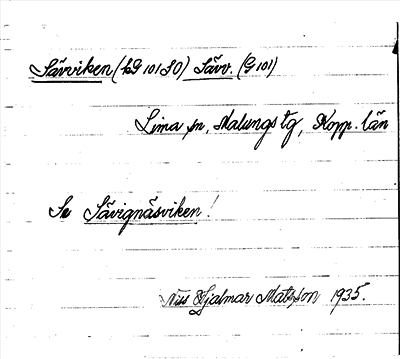 Sävviken (kG 101 SO) Sävv. (G 101)
Lima sn, Malungs tg, Kopp. län
Se Sävignäsviken!
Nils Hjalmar Matsson 1935.